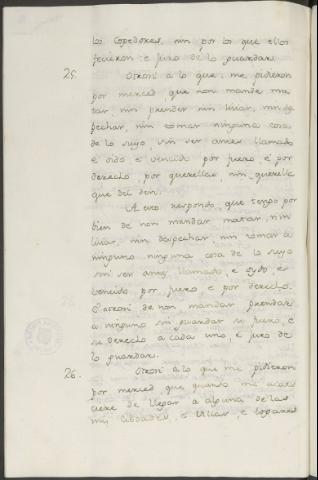 los Cogedores, nin por lo que ellos
ficieron: e juro de lo guardar.
25. Otrosi á lo que me pidieron
por merced, que non mande ma
tar, nin prender nin lisiar, nin des
pechar, nin tomar ninguna cosa
de lo suyo, sin ser antes llamado
é oido é vencido por fuero, é por
derecho, por querella, nin querella
que del den.
A esto respondo, que tengo por
bien de non mandar matar, nin
lisiar, nin despechar, nin tomar á
ninguno ninguna cosa de lo suyo
sin ser antes llamado, e oydo, e
vencido por fuero e por derecho.
Otrosi de non mandar prendar
a ninguno sin guardar su fuero, e
su derecho a cada uno, e juro de
lo guardar.
26. Otrosi a lo que me pidieron
por merced que quando me acaes
ciere de llegar a alguna de las
mis cibdades, e villas, e logares